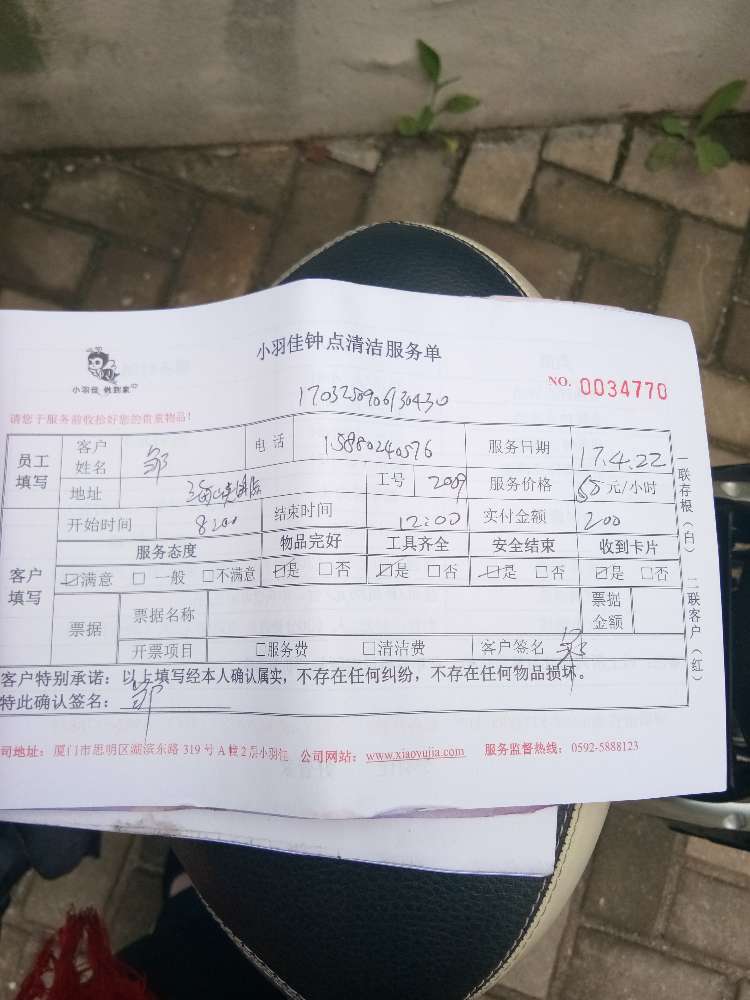 小羽佳钟点清洁服务单
小羽佳 做到家
NO. 0034770
请您于服务前收拾好您的贵重物品!
员工填写 客户姓名 邹 电话 15880240576 服务日期 17.4.22
地址 工号 2009 服务价格 50元/小时
客户填写 开始时间 8:00 结束时间 12:00 实付金额 200
服务态度 物品完好 工具齐全 安全结束 收到卡片
☑满意 □一般 □不满意 ☑是 □否 ☑是 □否 ☑是 □否 ☑是 □否
票据 票据名称 票据金额
开票项目 □服务费 □清洁费 客户签名
客户特别承诺：以上填写经本人确认属实，不存在任何纠纷，不存在任何物品损坏。
特此确认签名：邹
司地址：厦门市思明区湖滨东路 319 号 A 幢 2 层小羽佳 公司网站：www.xiaoyujia.com 服务监督热线：0592-5888123
一联存根（白） 二联客户（红）